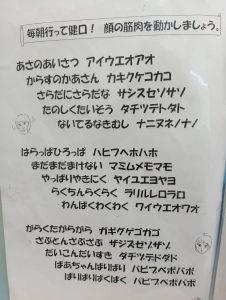 毎朝行って健口！ 顔の筋肉を動かしましょう。
あさのあいさつ アイウエオアオ
からすのかあさん カキクケコカコ
さらだにさらだな サシスセソサソ
たのしくたいそう タチツテトタト
ないてるなきむし ナニヌネノナノ
はらっぱひろっぱ ハヒフヘホハホ
まだまだまけない マミムメモマモ
やっぱりやきにく ヤイユエヨヤヨ
らくちんらくらく ラリルレロラロ
わんぱくわくわく ワイウエオワオ
がらくたがらがら ガギグゲゴガゴ
ざぶとんざぶざぶ ザジズゼゾザゾ
だいこんだいすき ダヂヅデドダド
ばあちゃんばりばり バビブベボバボ
ぱりぱりぱくぱく パピプペポパポ